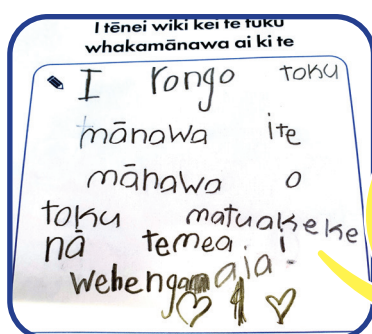 I tēnei wiki kei te tuku
whakamānawa ai ki te
I rongo toku
mānawa ite
mānawa o
toku matuakeke
nā temea i
wehengamaia